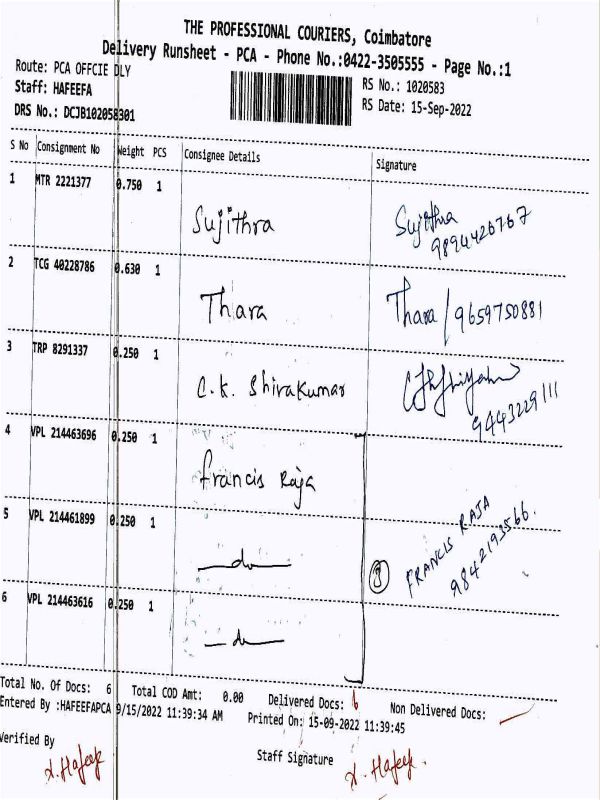 THE PROFESSIONAL COURIERS, Coimbatore
Delivery Runsheet - PCA - Phone No.:0422-3505555 - Page No.:1
Route: PCA OFFCIE DLY
RS No.: 1020583
Staff: HAFEEFA
RS Date: 15-Sep-2022
DRS No.: DCJB102058301
S No Consignment No Weight PCS Consignee Details Signature
1 MTR 2221377 0.750 1
Sujithra Sujithra
9894426767
2 TCG 40228786 0.630 1
Thara Thara / 9659750881
3 TRP 8291337 0.250 1
C.K. Shivakumar
9443229111
4 VPL 214463696 0.250 1
Francis Raja
5 VPL 214461899 0.250 1
do 3 FRANCIS RAJA
9842193566.
6 VPL 214463616 0.250 1
do
Total No. Of Docs: 6 Total COD Amt: 0.00 Delivered Docs: 6 Non Delivered Docs:
Entered By :HAFEEFAPCA 9/15/2022 11:39:34 AM Printed On: 15-09-2022 11:39:45
Verified By Staff Signature
X. Hafeef X. Hafeef.